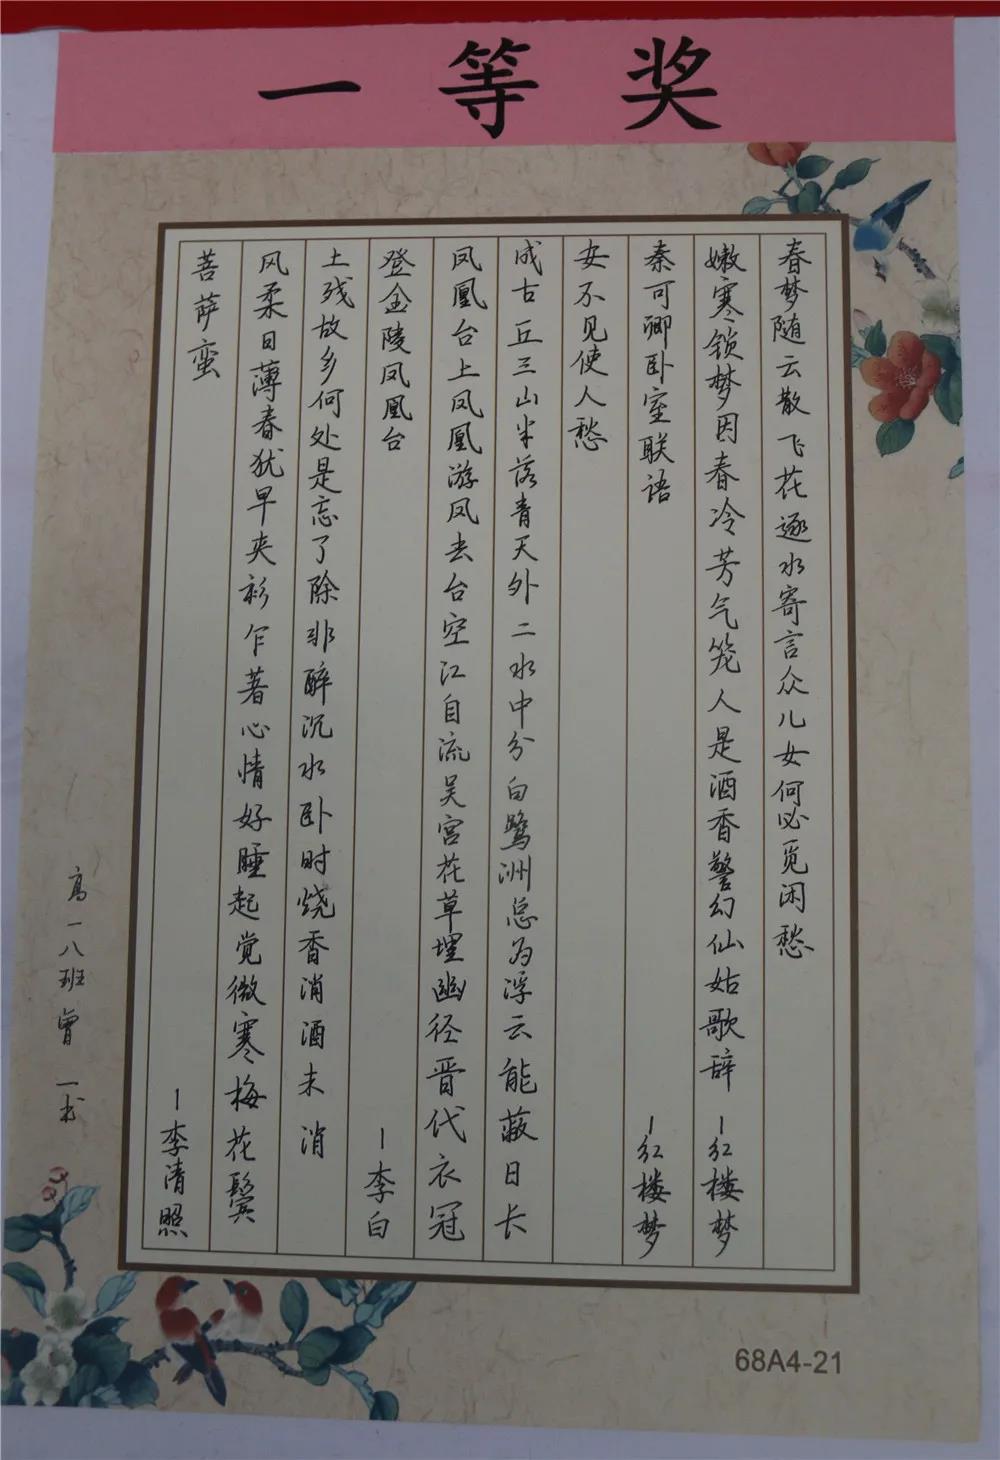 一等奖
菩萨蛮 —李清照
风柔日薄春犹早夹衫乍著心情好睡起觉微寒梅花鬓
土残故乡何处是忘了除非醉沉水卧时烧香消酒未消
登金陵凤凰台 —李白
凤凰台上凤凰游凤去台空江自流吴宫花草埋幽径晋代衣冠
成古丘三山半落青天外二水中分白鹭洲总为浮云能蔽日长
安不见使人愁
秦可卿卧室联语 —红楼梦
嫩寒锁梦因春冷芳气笼人是酒香警幻仙姑歌辞 —红楼梦
春梦随云散飞花逐水寄言众儿女何必觅闲愁
高一八班曾一书
68A4-21